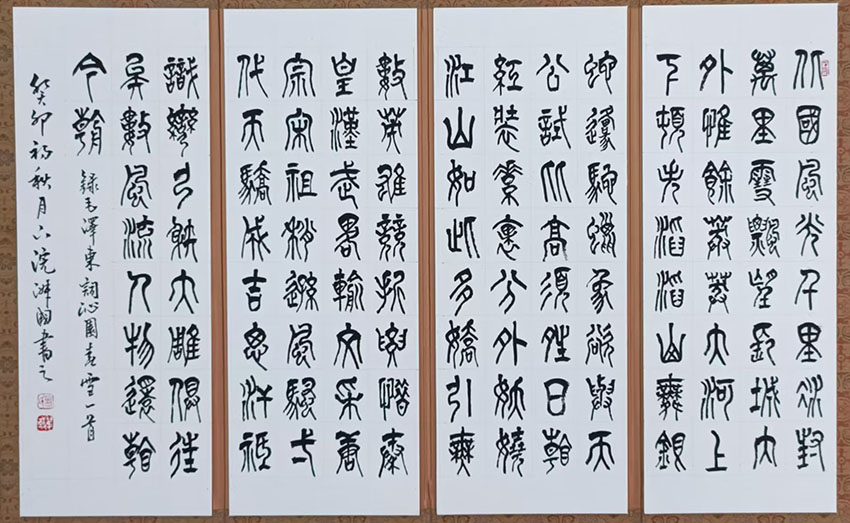 北國風光千里冰封
萬里雪飄望長城內
外惟餘莽莽大河上
下頓失滔滔山舞銀
蛇原馳蠟象欲與天
公試比高須晴日看
紅裝素裹分外妖嬈
江山如此多嬌引無
數英雄競折腰惜秦
皇漢武略輸文采唐
宗宋祖稍遜風騷一
代天驕成吉思汗祗
識彎弓射大雕俱往
矣數風流人物還看
今朝
錄毛澤東詞沁園春雪一首
癸卯初秋月浣書之